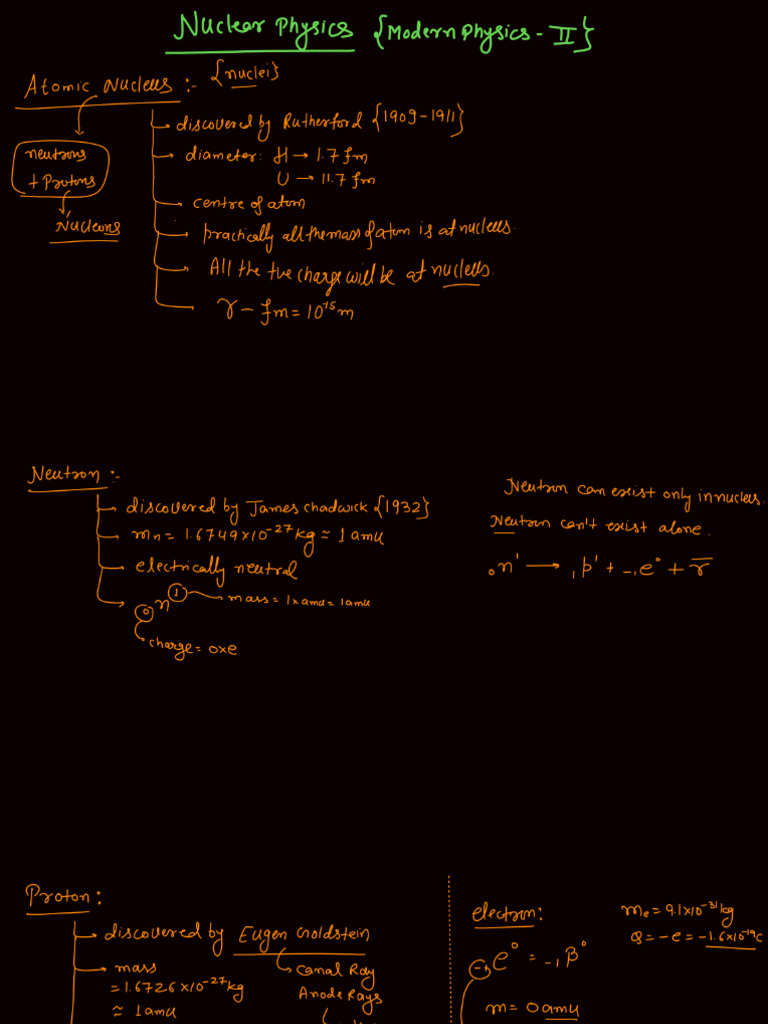 Nuclear Physics {Modern Physics - II}
Atomic Nucleus :- {nuclei}
neutrons
+ Protons
Nucleons
discovered by Rutherford {1909-1911}
diameter: H → 1.7 fm
U → 11.7 fm
centre of atom
practically all the mass of atom is at nucleus.
All the +ve charge will be at nucleus.
r - fm = 10⁻¹⁵ m
Neutron :-
discovered by James chadwick {1932}
mₙ = 1.6749×10⁻²⁷ kg ≈ 1 amu
electrically neutral
₀n¹ mass = 1×amu = 1amu
charge = 0×e
Neutron can exist only in nucleus.
Neutron can't exist alone.
₀n¹ → ₁p¹ + ₋₁e⁰ + r̅
Proton :
discovered by Eugen Goldstein
Canal Ray
Anode Rays
mass
= 1.6726×10⁻²⁷ kg
≈ 1amu
electron:
mₑ = 9.1×10⁻³¹ kg
Q = -e = -1.6×10⁻¹⁹ C
₋₁e⁰ = ₋₁β⁰
m = 0 amu